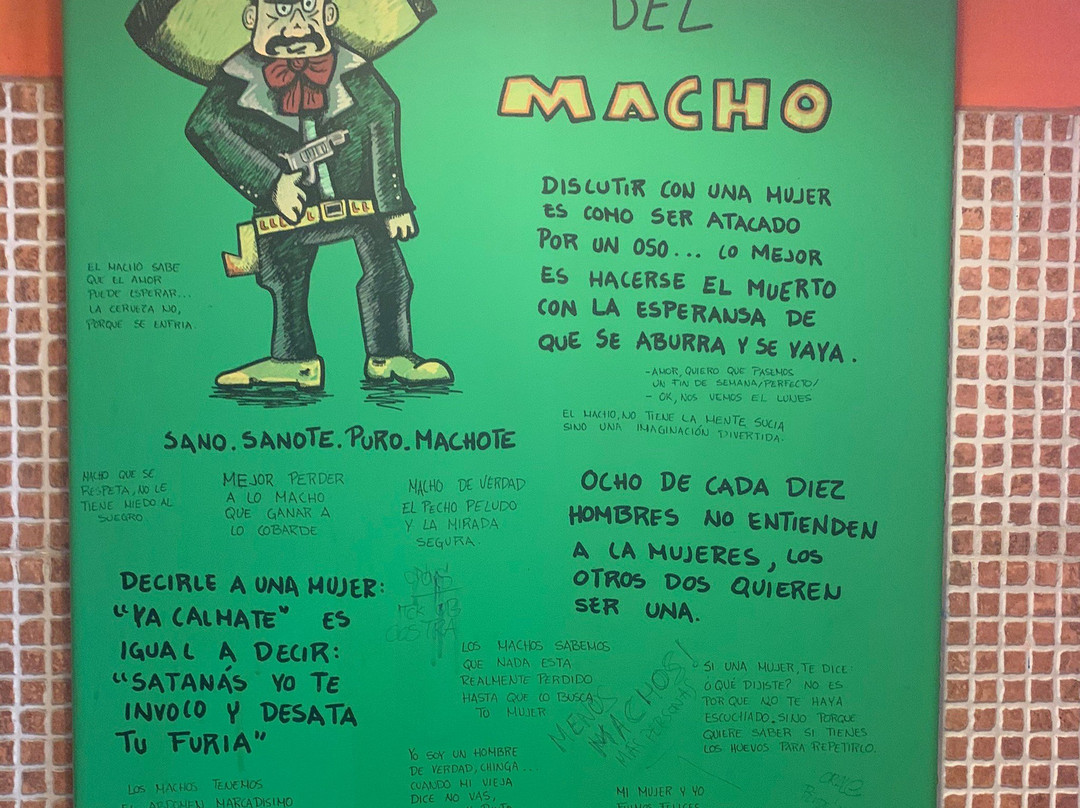 DEL
MACHO
DISCUTIR CON UNA MUJER
ES COMO SER ATACADO
POR UN OSO... LO MEJOR
ES HACERSE EL MUERTO
CON LA ESPERANSA DE
QUE SE ABURRA Y SE VAYA.
EL MACHO SABE
QUE EL AMOR
PUEDE ESPERAR...
LA CERVEZA NO,
PORQUE SE ENFRIA.
-AMOR, QUIERO QUE PASEMOS
UN FIN DE SEMANA/PERFECTO/
- OK, NOS VEMOS EL LUNES
EL MACHO, NO TIENE LA MENTE SUCIA
SINO UNA IMAGINACIÓN DIVERTIDA.
SANO. SANOTE. PURO. MACHOTE
MACHO QUE SE
RESPETA, NO LE
TIENE MIEDO AL
SUEGRO.
MEJOR PERDER
A LO MACHO
QUE GANAR A
LO COBARDE
MACHO DE VERDAD
EL PECHO PELUDO
Y LA MIRADA
SEGURA.
OCHO DE CADA DIEZ
HOMBRES NO ENTIENDEN
A LA MUJERES, LOS
OTROS DOS QUIEREN
SER UNA.
DECIRLE A UNA MUJER:
"YA CALMATE" ES
IGUAL A DECIR:
"SATANÁS YO TE
INVOCO Y DESATA
TU FURIA"
LOS MACHOS SABEMOS
QUE NADA ESTA
REALMENTE PERDIDO
HASTA QUE LO BUSCA
TU MUJER
MENOS
MACHOS!
MAS
SI UNA MUJER, TE DICE:
¿QUÉ DIJISTE? NO ES
PORQUE NO TE HAYA
ESCUCHADO. SINO PORQUE
QUIERE SABER SI TIENES
LOS HUEVOS PARA REPETIRLO.
YO SOY UN HOMBRE
DE VERDAD, CHINGA...
CUANDO MI VIEJA
DICE NO VAS,
LOS MACHOS TENEMOS
EL ABDOMEN MARCADISIMO
MI MUJER Y YO
FUIMOS FELICES